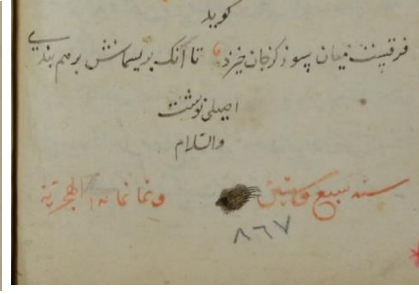 گوید
فرقیست میان سوز کز جان خیزد تا آنک بریسمانش برهم بندی
اصیلی نوشت
والسلام
سنه سبع وستین وثمانمائه الهجریة
۸۶۷